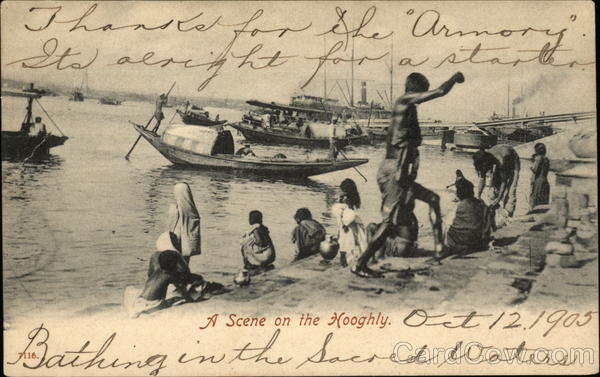 Thanks for the "Armory".
Its alright for a starter
A Scene on the Hooghly.
Oct 12. 1905
7116.
Bathing in the Sacred Waters
CardCow.com